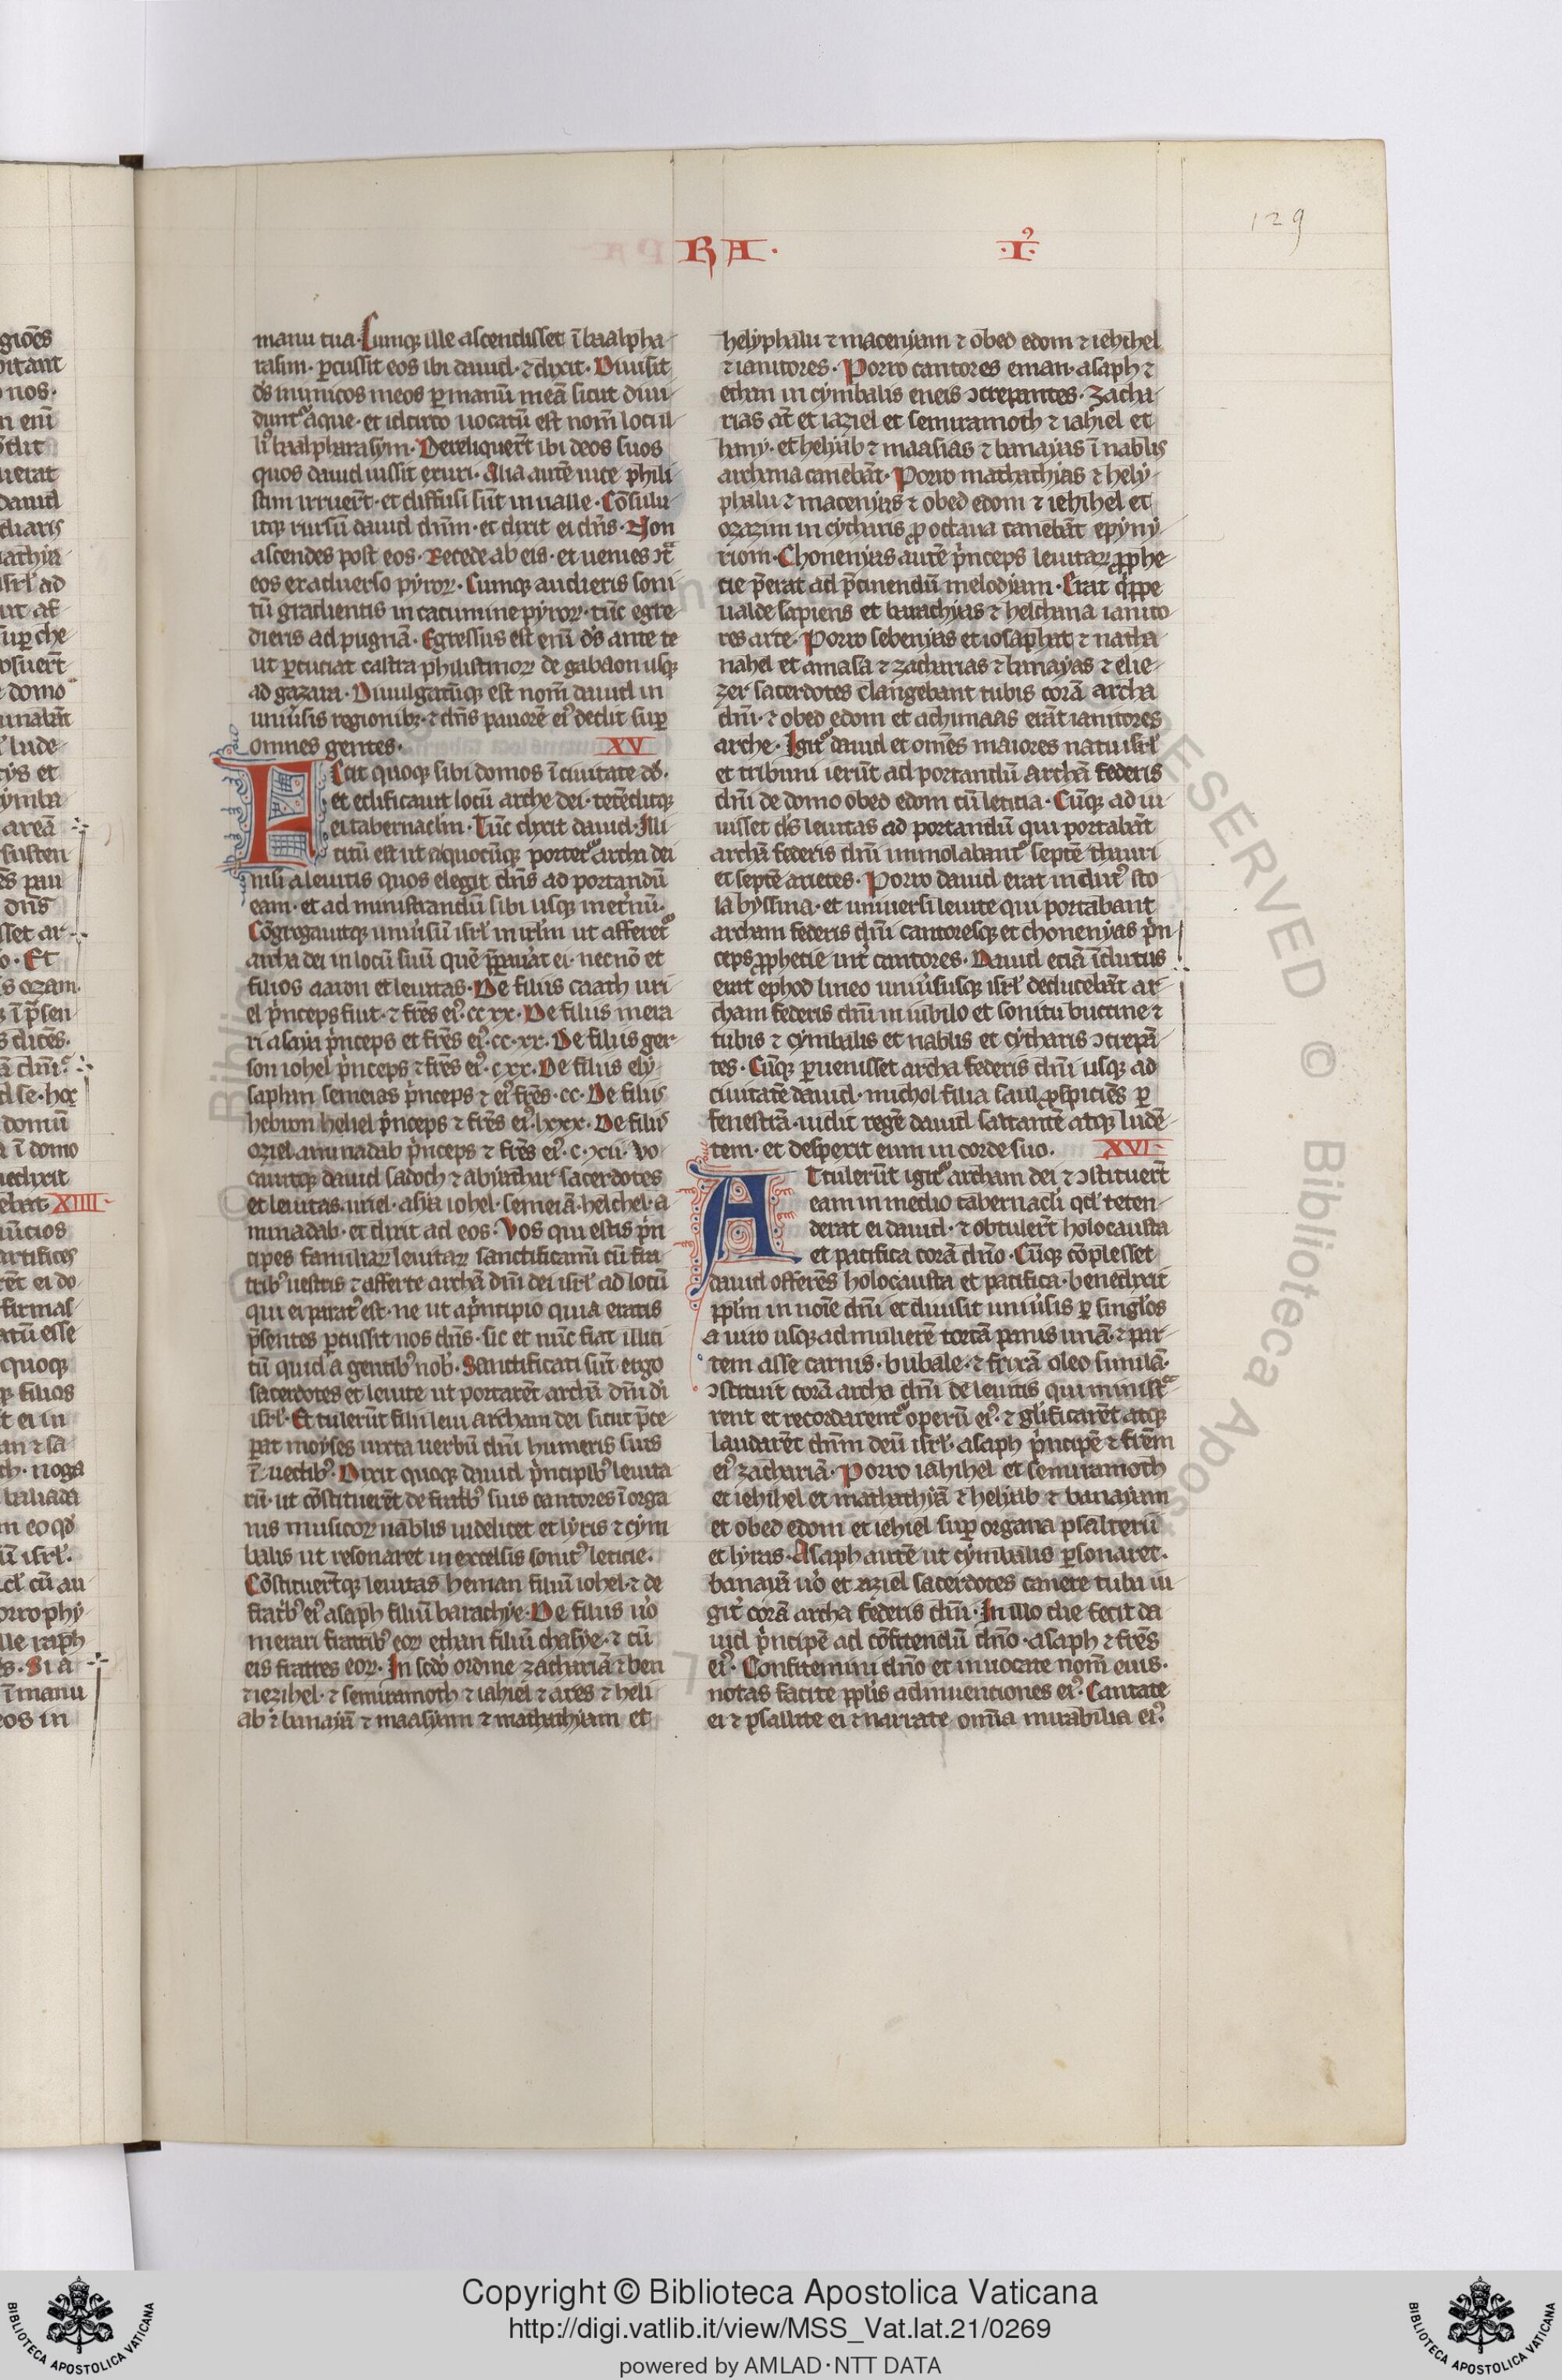 129
RA · I⁹
manu tua. Cumq; ille ascendisset ī baalpha-
rasim. ꝑcussit eos ibi dauid. ⁊ dixit. Diuisit
dš inimicos meos ꝑ manū meā sicut diui-
dunt᷑ aque. et idcirco uocatū est nom̄ loci il-
li⁹ baalpharasym. Dereliquer̄t ibi deos suos
quos dauid iussit exuri. Alia autē uice phili-
stiim irruer̄t. et diffusi sūt in ualle. Cōsulu-
itq; rursū dauid dn̄m. et dixit ei dn̄s. Non
ascendes post eos. Recede ab eis. et uenies ɔtᷓ
eos ex aduerso pyroꝝ. Cumq; audieris soni-
tū gradientis in cacumine pyroꝝ. tūc egre-
dieris ad pugnā. Egressus est enī dš ante te
ut ꝑcuciat castra philistinoꝝ de gabaon usq;
ad gazara. Diuulgatūq; est nom̄ dauid in
uniu᷒sis regionibꝫ. ⁊ dn̄s pauorē ei⁹ dedit suꝑ
omnes gentes. XV
Fecit quoq; sibi domos ī ciuitate dd̄.
et edificauit locū arche dei. tetēditq;
ei tabernaclm̄. Tūc dixit dauid. Illi-
citū est ut a quocūq; portet᷑ archa dei
nisi a leuitis quos elegit dn̄s ad portandū
eam. et ad ministrandū sibi usq; inet᷒nū.
Cōgregauitq; uniu᷒sū isrł in irłm ut afferret᷑
archa dei in locū suū quē p̄ꝑau᷒at ei. necnō et
filios aaron et leuitas. De filiis caath uri-
el p᷒nceps fuit. ⁊ fr̄es ei⁹. cc xx. De filiis mera-
ri asaya p᷒nceps et fr̄es ei⁹. cc. xx. De filiis ger-
son iohel p᷒nceps ⁊ fr̄es ei⁹. c xx. De filiis ely-
saphan semeias p᷒nceps ⁊ ei⁹ fr̄es. cc. De filiis
hebron heliel p᷒nceps ⁊ fr̄es ei⁹. lxxx. De filiis
oziel aminadab p᷒nceps ⁊ fr̄es ei⁹. c. xii. Vo-
cauitq; dauid sadoch ⁊ abyathar sacerdotes
et leuitas. uriel. asya iohel. semeiā. helchel. a-
minadab. et dixit ad eos. Vos qui estis p᷒n-
cipes familiaꝝ leuitaꝝ sanctificami᷒ cū fra-
trib⁹ uestris ⁊ afferte archā dn̄i dei isrł ad locū
qui ei parat⁹ est. ne ut a p᷒ncipio quia eratis
p̄sentes ꝑcussit nos dn̄s. sic et nūc fiat illici-
tū quid a gentib⁹ nob᷒. Sanctificati sūt ergo
sacerdotes et leuite ut portarēt archā dn̄i di
isrł. Et tulerūt filii leui archam dei sicut p̄ce-
ꝑat moyses iuxta uerbū dn̄i humeris suis
ī uectib⁹. Dixit quoq; dauid p᷒ncipib⁹ leuita-
rū. ut cōstituerēt de frat᷒b⁹ suis cantores ī orga-
nis musicoꝝ nablis uidelicet et lyris ⁊ cym-
balis ut resonaret in excelsis sonit⁹ leticie.
Cōstituer̄tq; leuitas heman filiū iohel. ⁊ de
frat᷒b⁹ ei⁹ asaph filiū barachye. De filiis u᷒o
merari fratrib⁹ eoꝝ ethan filiū chasye. ⁊ cū
eis fratres eoꝝ. In scd̄o ordine zachariā ⁊ ben
⁊ iezihel. ⁊ semiramoth ⁊ iahiel ⁊ ares ⁊ heli-
ab ⁊ banayā ⁊ maasyam ⁊ mathathyam et
helyphalu ⁊ macenyam ⁊ obed edom ⁊ iehihel
⁊ ianitores. Porro cantores eman. asaph ⁊
ethan in cymbalis eneis ɔcrepantes. Zacha-
rias at̄ et iaziel et semiramoth ⁊ iahiel et
hany. et helyab ⁊ maasias ⁊ banayas ī nablis
archana canebāt. Porro mathathyas ⁊ hely-
phalu ⁊ macenyas ⁊ obed edom ⁊ iehihel et
orazim in cytharis ꝓ octaua canebāt epyny-
rion. Chonenyas autē p᷒nceps leuitaꝝ ꝓphe-
cie p̄erat ad p̄cinendū melodyam. Erat q᷒ppe
ualde sapiens et barachyas ⁊ helchana ianito-
res arce. Porro sebenyas et iosaphat ⁊ natha-
nahel et amasa ⁊ zacharias ⁊ banayas ⁊ elie-
zer sacerdotes clangebant tubis corā archa
dn̄i. ⁊ obed edom et achimaas erāt ianitores
arche. Igit᷑ dauid et om̄es maiores natu isrł
et tribuni ierūt ad portandū archā federis
dn̄i de domo obed edom cū leticia. Cūq; ad iu-
uisset d᷒s leuitas ad portandū qui portabāt
archā federis dn̄i immolabant᷑ septē thauri
et septē arietes. Porro dauid erat indut⁹ sto-
la byssina. et uniuersi leuite qui portabant
archam federis dn̄i cantoresq; et chonenyas p᷒n-
ceps ꝓphecie int᷒ cantores. Dauid eciā īdutus
erat ephod lineo uniu᷒susq; isrł deducebāt ar-
cham federis dn̄i in iubilo et sonitu buccine ⁊
tubis ⁊ cymbalis et nablis et cytharis ɔcrepā-
tes. Cūq; ꝑuenisset archa federis dn̄i usq; ad
ciuitatē dauid. michol filia saul ꝓspiciēs ꝑ
fenestrā. uidit regē dauid saltantē atq; ludē-
tem. et despexit eum in corde suo. XVI
Attulerūt igit᷑ archam dei ⁊ ɔstituer̄t
eam in medio tabernacli᷒ qd̄ teten-
derat ei dauid. ⁊ obtuler̄t holocausta
et pacifica corā dn̄o. Cūq; cōplesset
dauid offerēs holocausta et pacifica. benedixit
ppl̄m in noīe dn̄i et diuisit uniu᷒sis ꝑ singl̄os
a uiro usq; ad mulierē tortā panis unā. ⁊ par-
tem asse carnis. bubale. ⁊ frixā oleo similā.
ɔstituit corā archa dn̄i de leuitis qui ministᷓ-
rent et recordarent᷑ operū ei⁹. ⁊ gl̄ificarēt atq;
laudarēt dn̄m deū isrł. asaph p᷒ncipē ⁊ fr̄em
ei⁹ zachariā. Porro iahihel et semiramoth
et iehihel et mathathyā ⁊ helyab ⁊ banayam
et obed edom et iehiel suꝑ organa psalterii
et lyras. Asaph autē ut cymbalis ꝑsonaret.
banayā u᷒o et aziel sacerdotes canere tuba iu-
git᷒ corā archa federis dn̄i. In illo die fecit da-
uid p᷒ncipē ad cōfitendū dn̄o. asaph ⁊ fr̄es
ei⁹. Confitemini dn̄o et inuocate nom̄ eius.
notas facite ppl̄is adinuenciones ei⁹. Cantate
ei ⁊ psallate ei ⁊ narrate om̄ia mirabilia ei⁹.
Copyright © Biblioteca Apostolica Vaticana
http://digi.vatlib.it/view/MSS_Vat.lat.21/0269
powered by AMLAD·NTT DATA
BIBLIOTECA APOSTOLICA VATICANA
BIBLIOTECA APOSTOLICA VATICANA